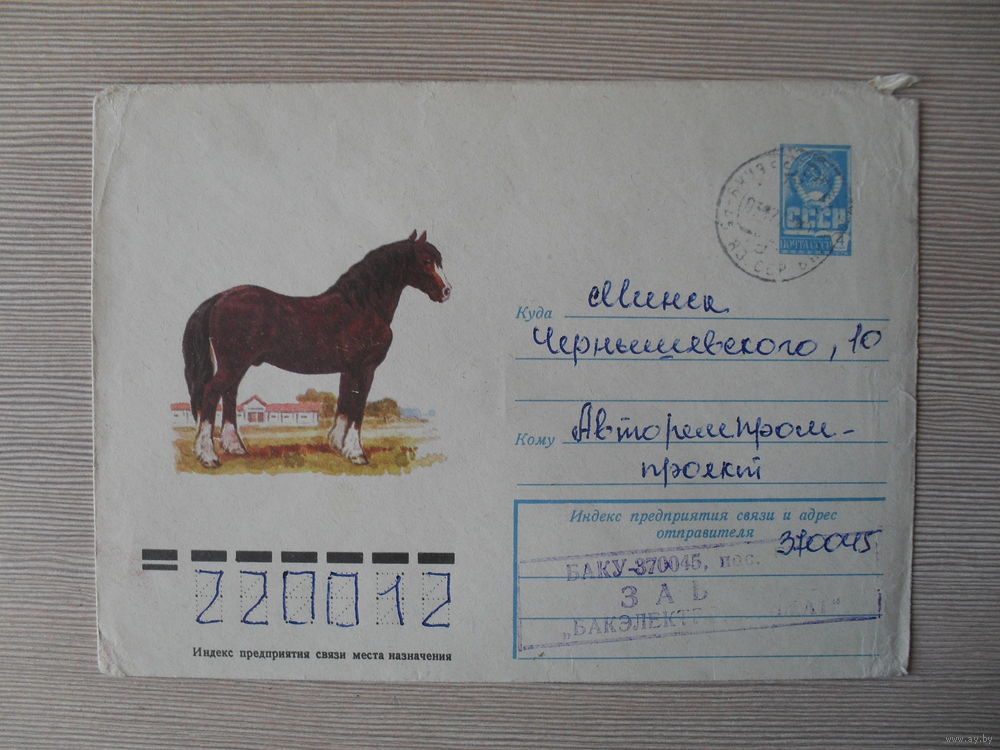 СССР
ПОЧТА СССР 4
Куда Минск
Чернышевского, 10
Кому Авторемпром-
проект
Индекс предприятия связи и адрес
отправителя
370045
БАКУ-370045, пос.
ЗАЬ
220012
Индекс предприятия связи места назначения
www.ay.by